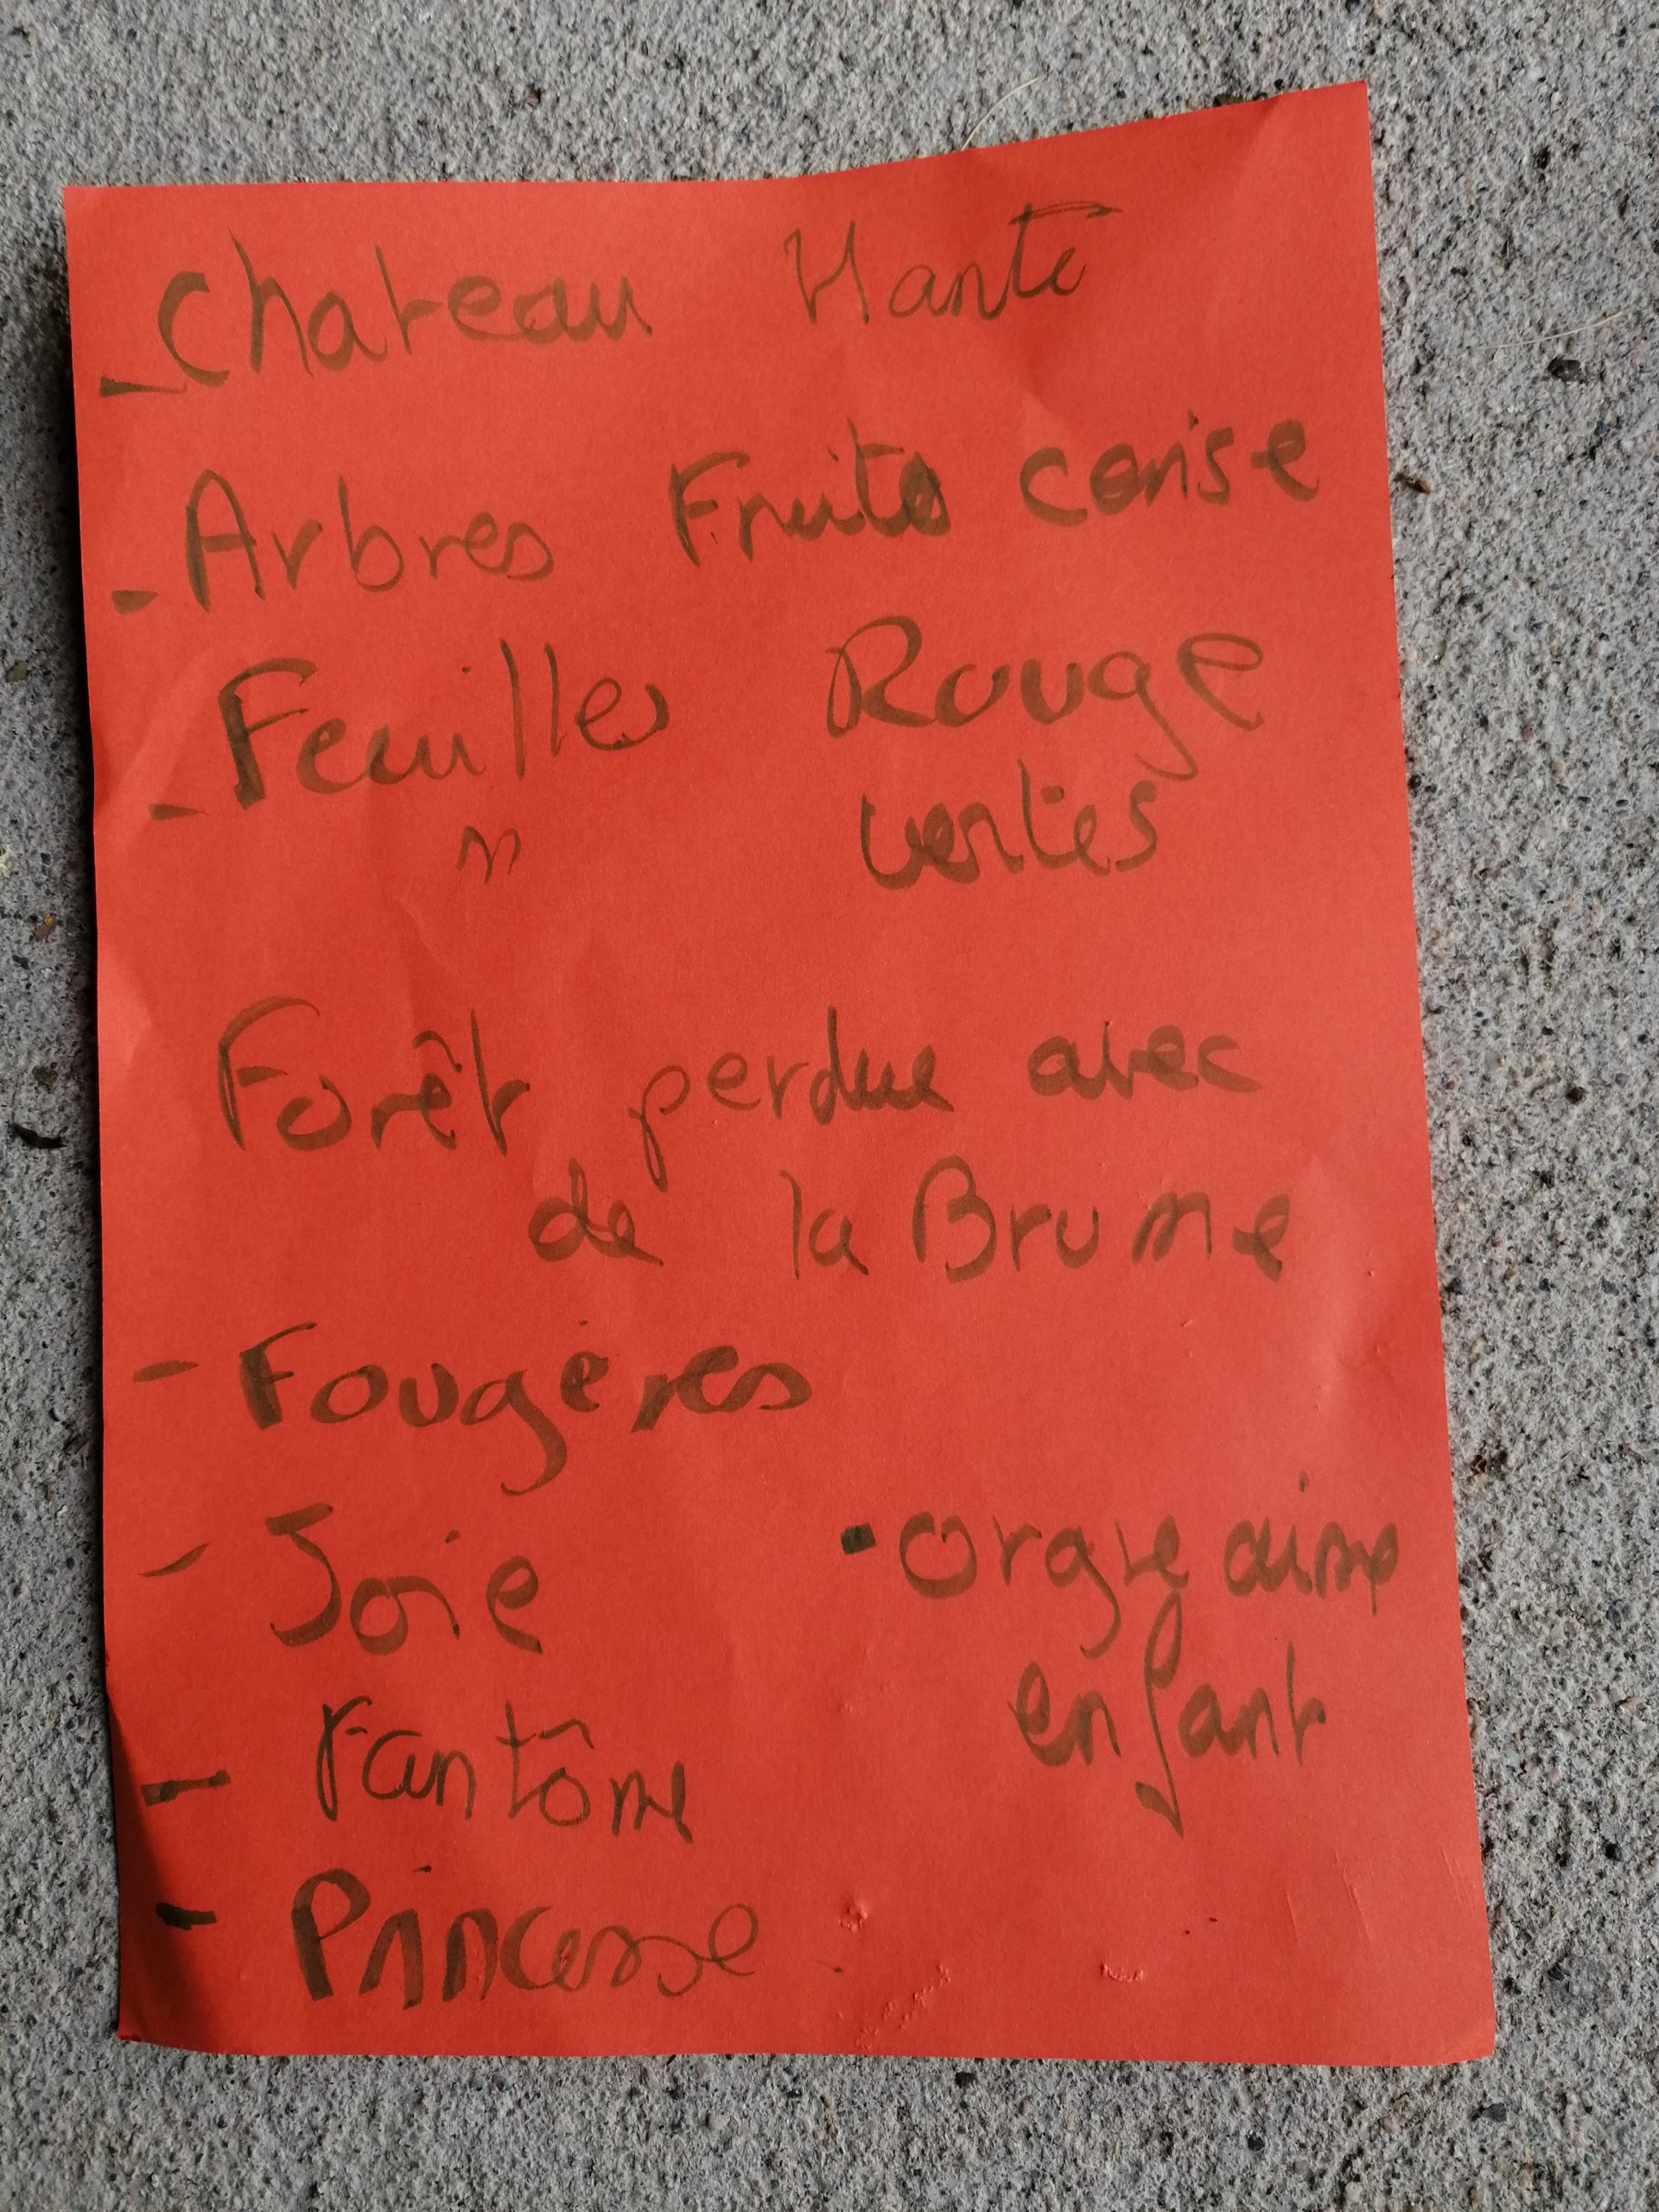 - Chateau Hanté
- Arbres Fruits cerise
- Feuilles Rouge
" vertes
Forêt perdue avec
de la Brume
- Fougères
- Joie
• Orgre aime
enfant
- Fantôme
- Princesse